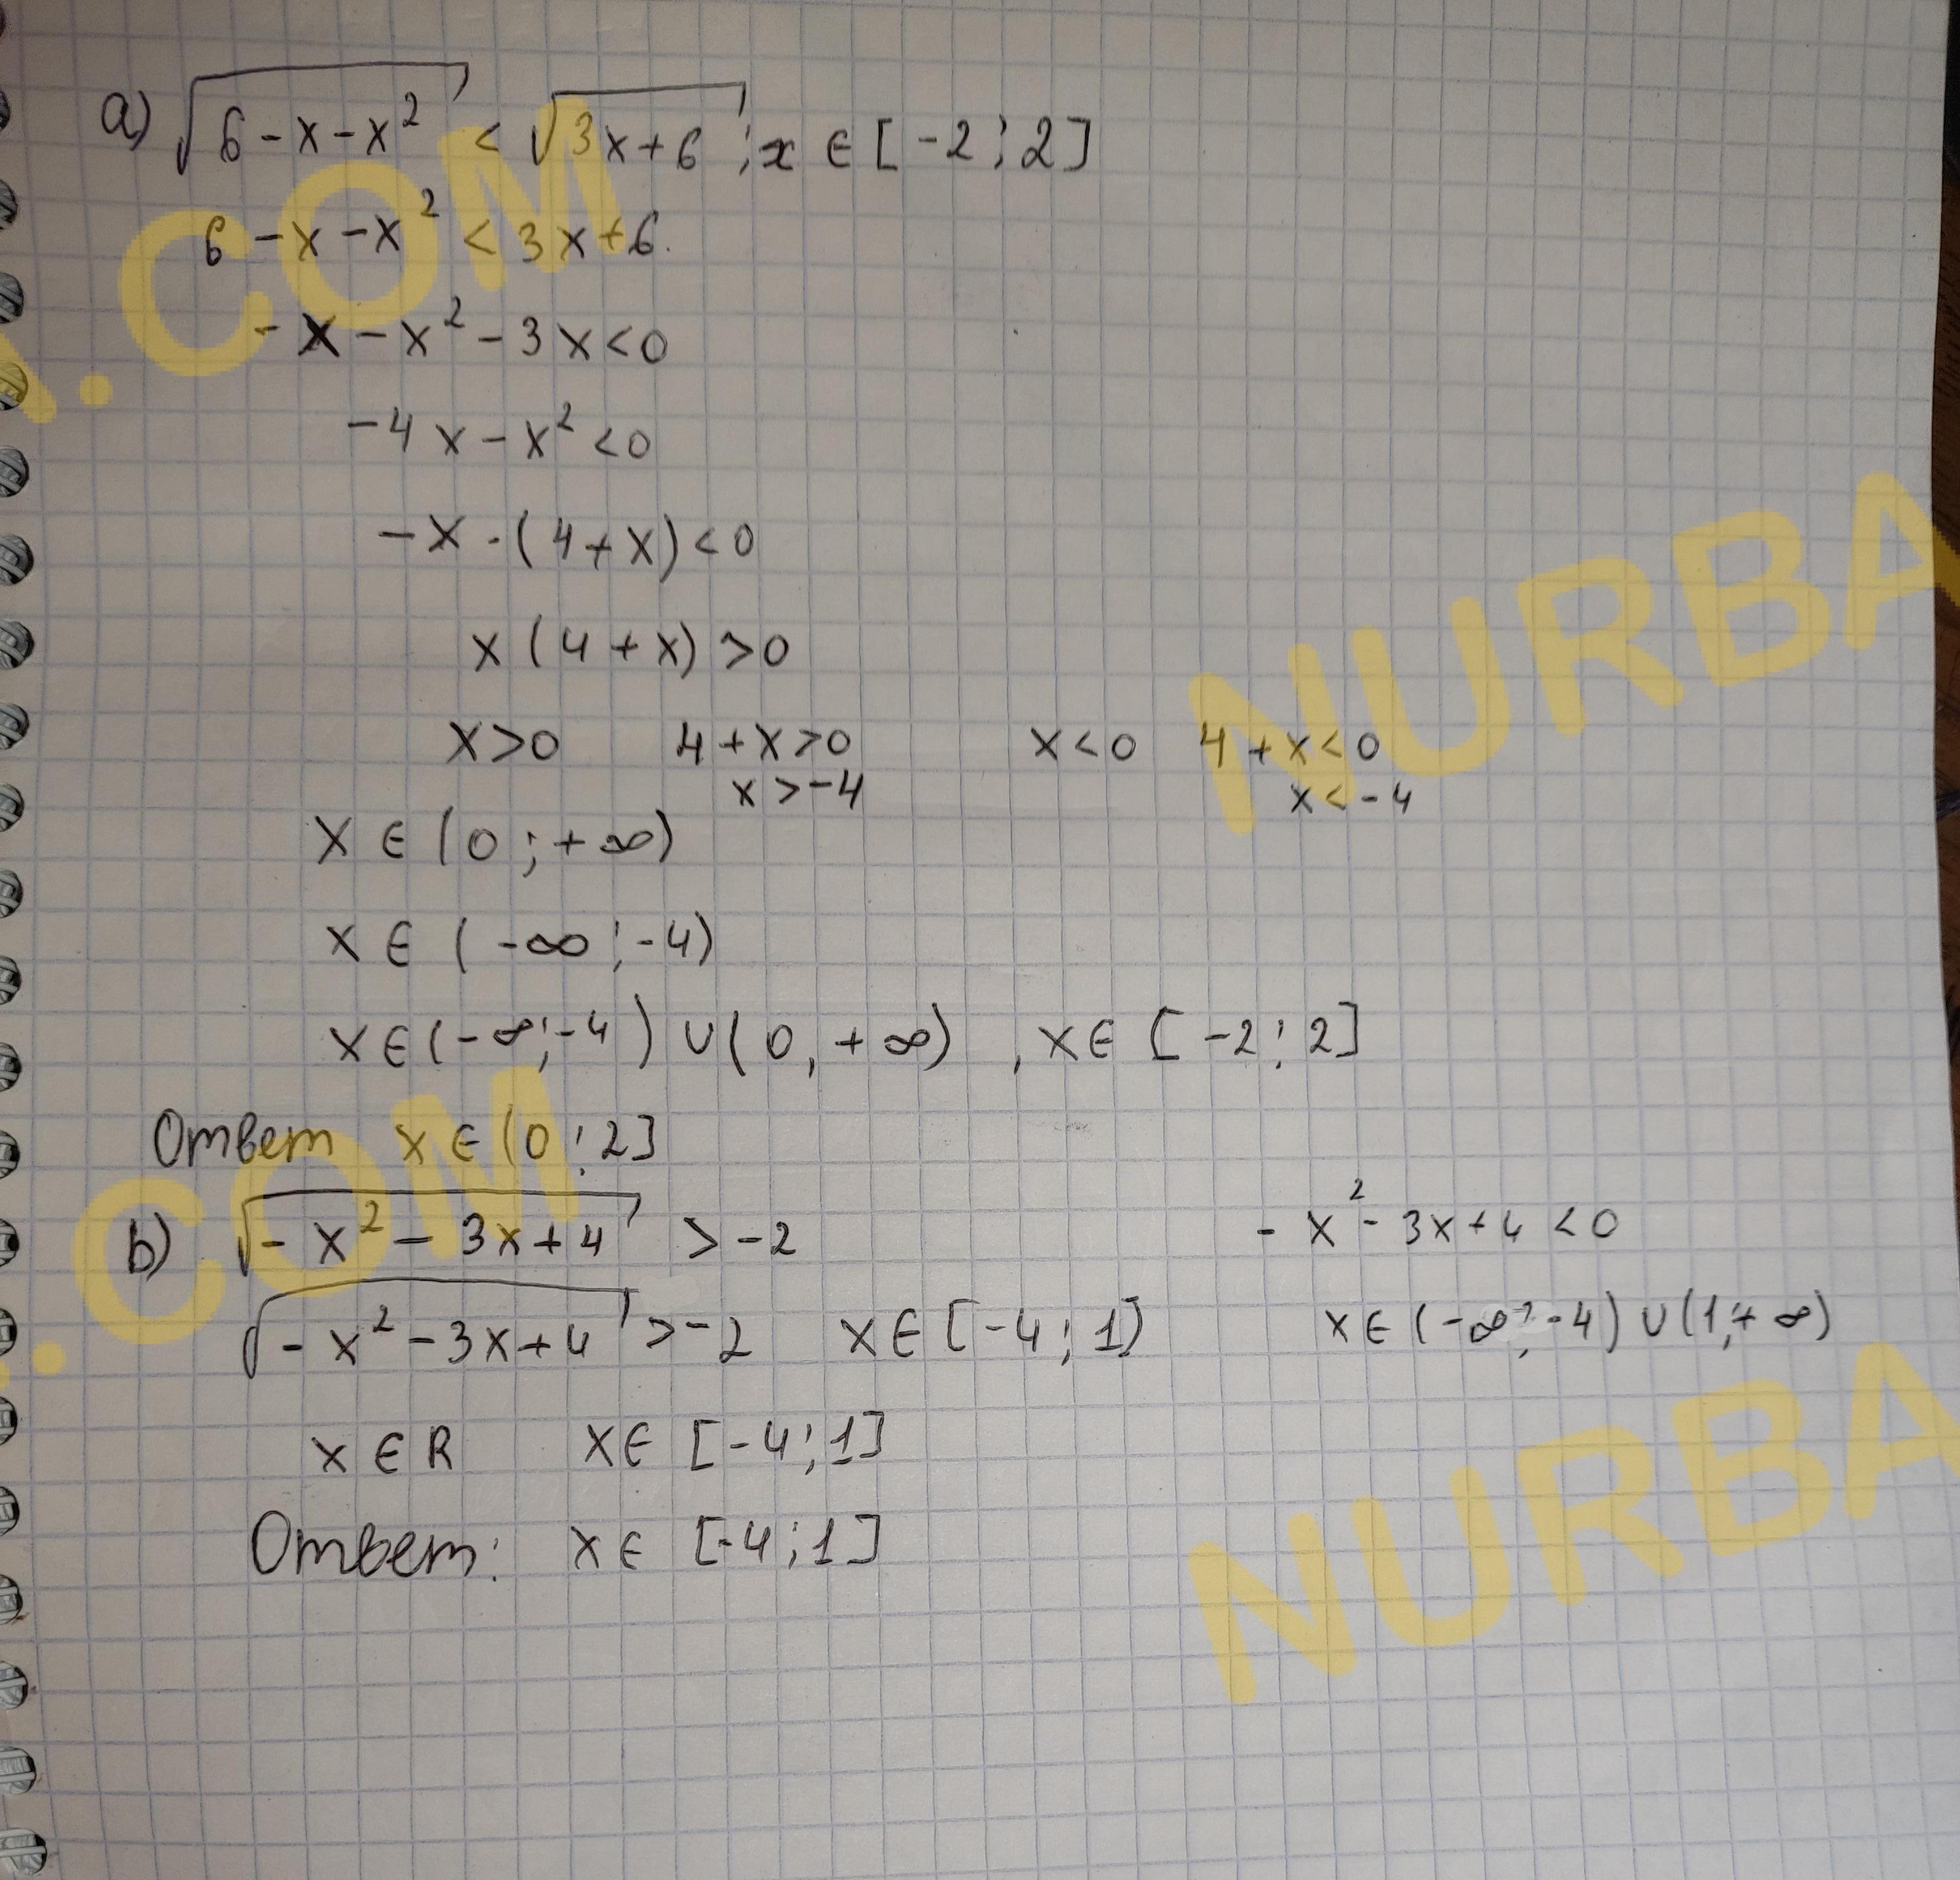 а) √(6 - x - x²) < √(3x + 6) ; x ∈ [-2 ; 2]
6 - x - x² < 3x + 6.
- x - x² - 3x < 0
-4x - x² < 0
-x · (4 + x) < 0
x (4 + x) > 0
x > 0 4 + x > 0 x < 0 4 + x < 0
x > -4 x < -4
x ∈ (0 ; +∞)
x ∈ (-∞ ; -4)
x ∈ (-∞; -4) ∪ (0, +∞) , x ∈ [-2 ; 2]
Ответ x ∈ (0 ; 2]
b) √(-x² - 3x + 4) > -2 - x² - 3x + 4 < 0
√(-x² - 3x + 4) > -2 x ∈ [-4 ; 1] x ∈ (-∞; -4) ∪ (1; +∞)
x ∈ R x ∈ [-4 ; 1]
Ответ: x ∈ [-4 ; 1]
.COM
NURBA
.COM
NURBA